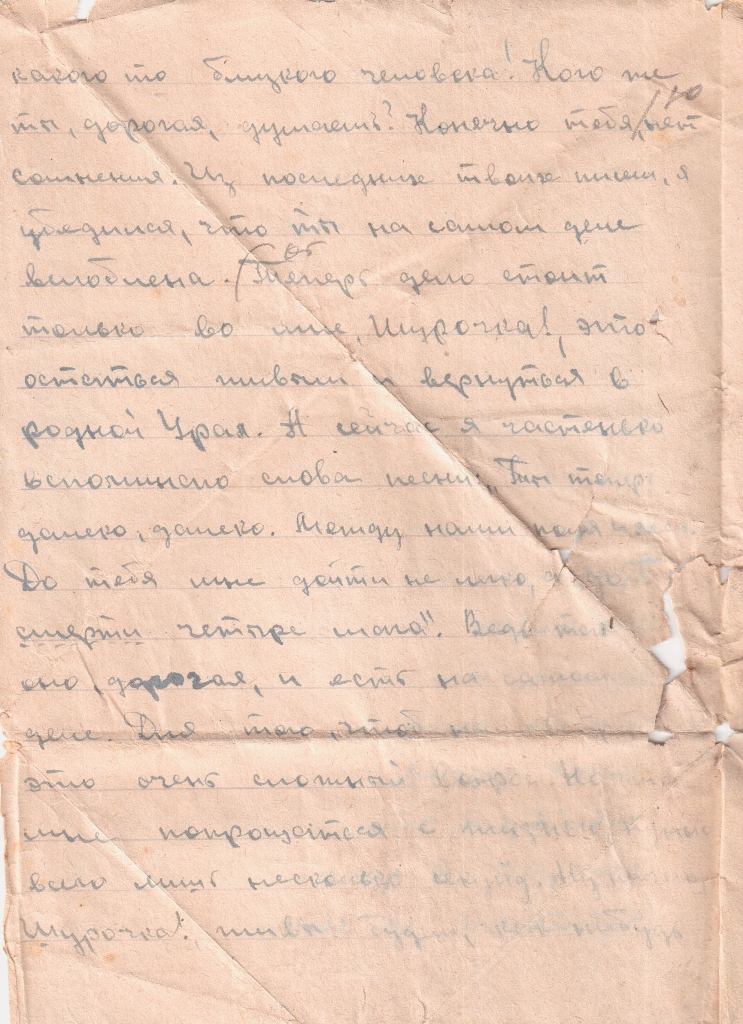 какого то близкого человека! Кого же
ты, дорогая, думаешь? Конечно тебя, нет
сомнения. Из последних твоих писем, я
убедился, что ты на самом деле
влюблена. Теперь дело стоит
только во мне, Шурочка!, это
остаться живым и вернуться в
родной Урал. А сейчас я частенько
вспоминаю слова песни: „Ты теперь
далеко, далеко. Между нами
До тебя мне дойти не легко, а до
смерти четыре шага". Ведь так
оно, дорогая, и есть на самом
деле. Для того, чтоб
это очень сложный вопрос.
мне попрощаться с жизнью нужно
всего лишь несколько секунд. Ну ничего
Шурочка!, живы будем, когда нибудь